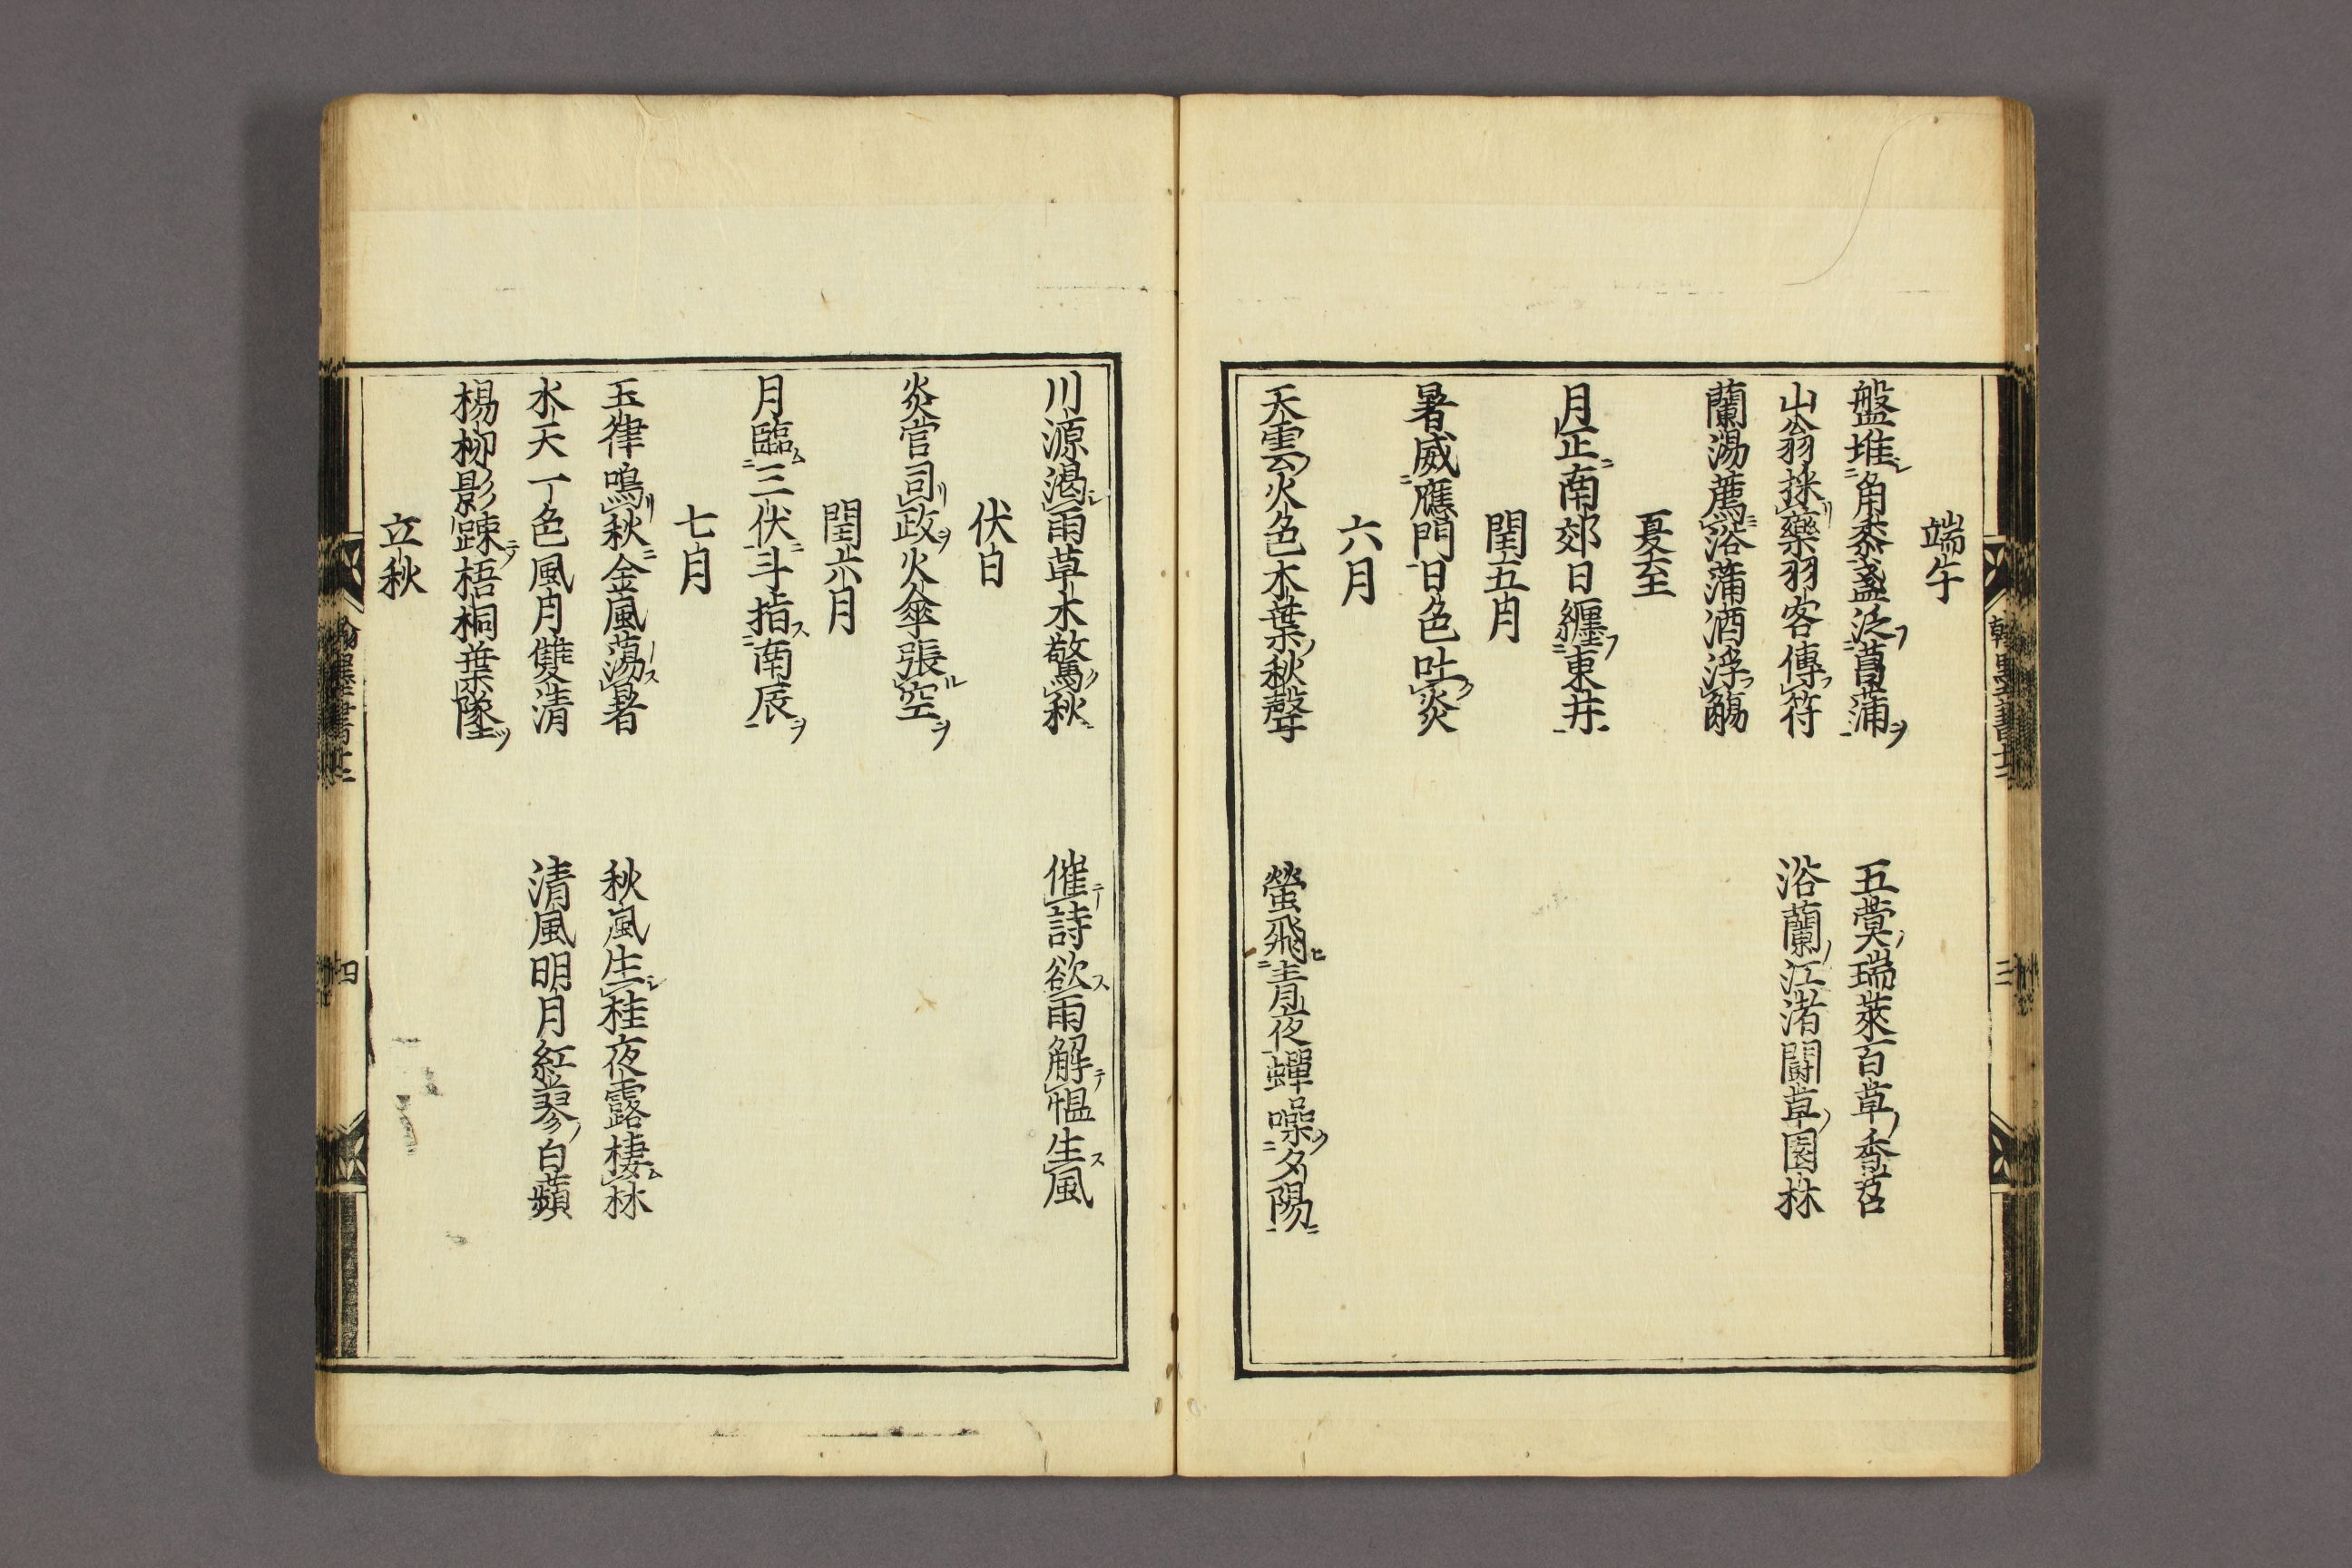 端午
盤堆角黍盞泛菖蒲
五蓂瑞萊百草香苕
山翁採藥羽客傳符
浴蘭江渚鬪草園林
蘭湯薦浴蒲酒浮觴
夏至
月正南郊日纏東井
閏五月
暑威應門日色吐炎
六月
天雲火色木葉秋聲
螢飛青夜蟬噪夕陽
川源渇雨草木驚秋
催詩欲雨解慍生風
伏日
炎官司政火傘張空
閏六月
月臨三伏斗指南辰
七月
玉律鳴秋金風蕩暑
秋風生桂夜露棲林
水天一色風月雙清
清風明月紅蓼白蘋
楊柳影踈梧桐葉墜
立秋